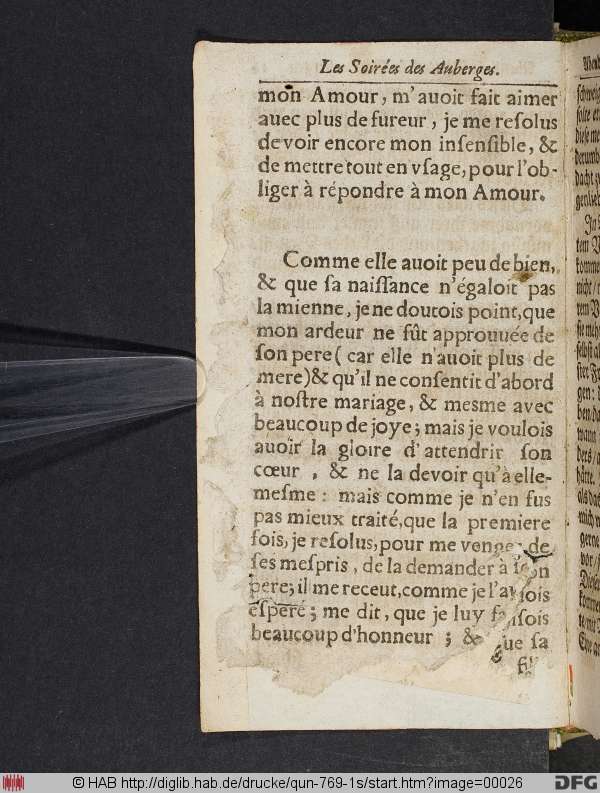 Les Soirées des Auberges.
mon Amour, m'auoit fait aimer
auec plus de fureur, je me resolus
de voir encore mon insensible, &
de mettre tout en vsage, pour l'ob-
liger à répondre à mon Amour.
Comme elle auoit peu de bien,
& que sa naissance n'égaloit pas
la mienne, je ne doutois point, que
mon ardeur ne fût approuuée de
son pere ( car elle n'auoit plus de
mere) & qu'il ne consentit d'abord
à nostre mariage, & mesme avec
beaucoup de joye; mais je voulois
auoir la gloire d'attendrir son
cœur, & ne la devoir qu'à elle-
mesme : mais comme je n'en fus
pas mieux traité, que la premiere
fois, je resolus, pour me venger de
ses mespris, de la demander à son
pere; il me receut, comme je l'avois
esperé; me dit, que je luy faisois
beaucoup d'honneur ; & que sa
© HAB http://diglib.hab.de/drucke/qun-769-1s/start.htm?image=00026
DFG